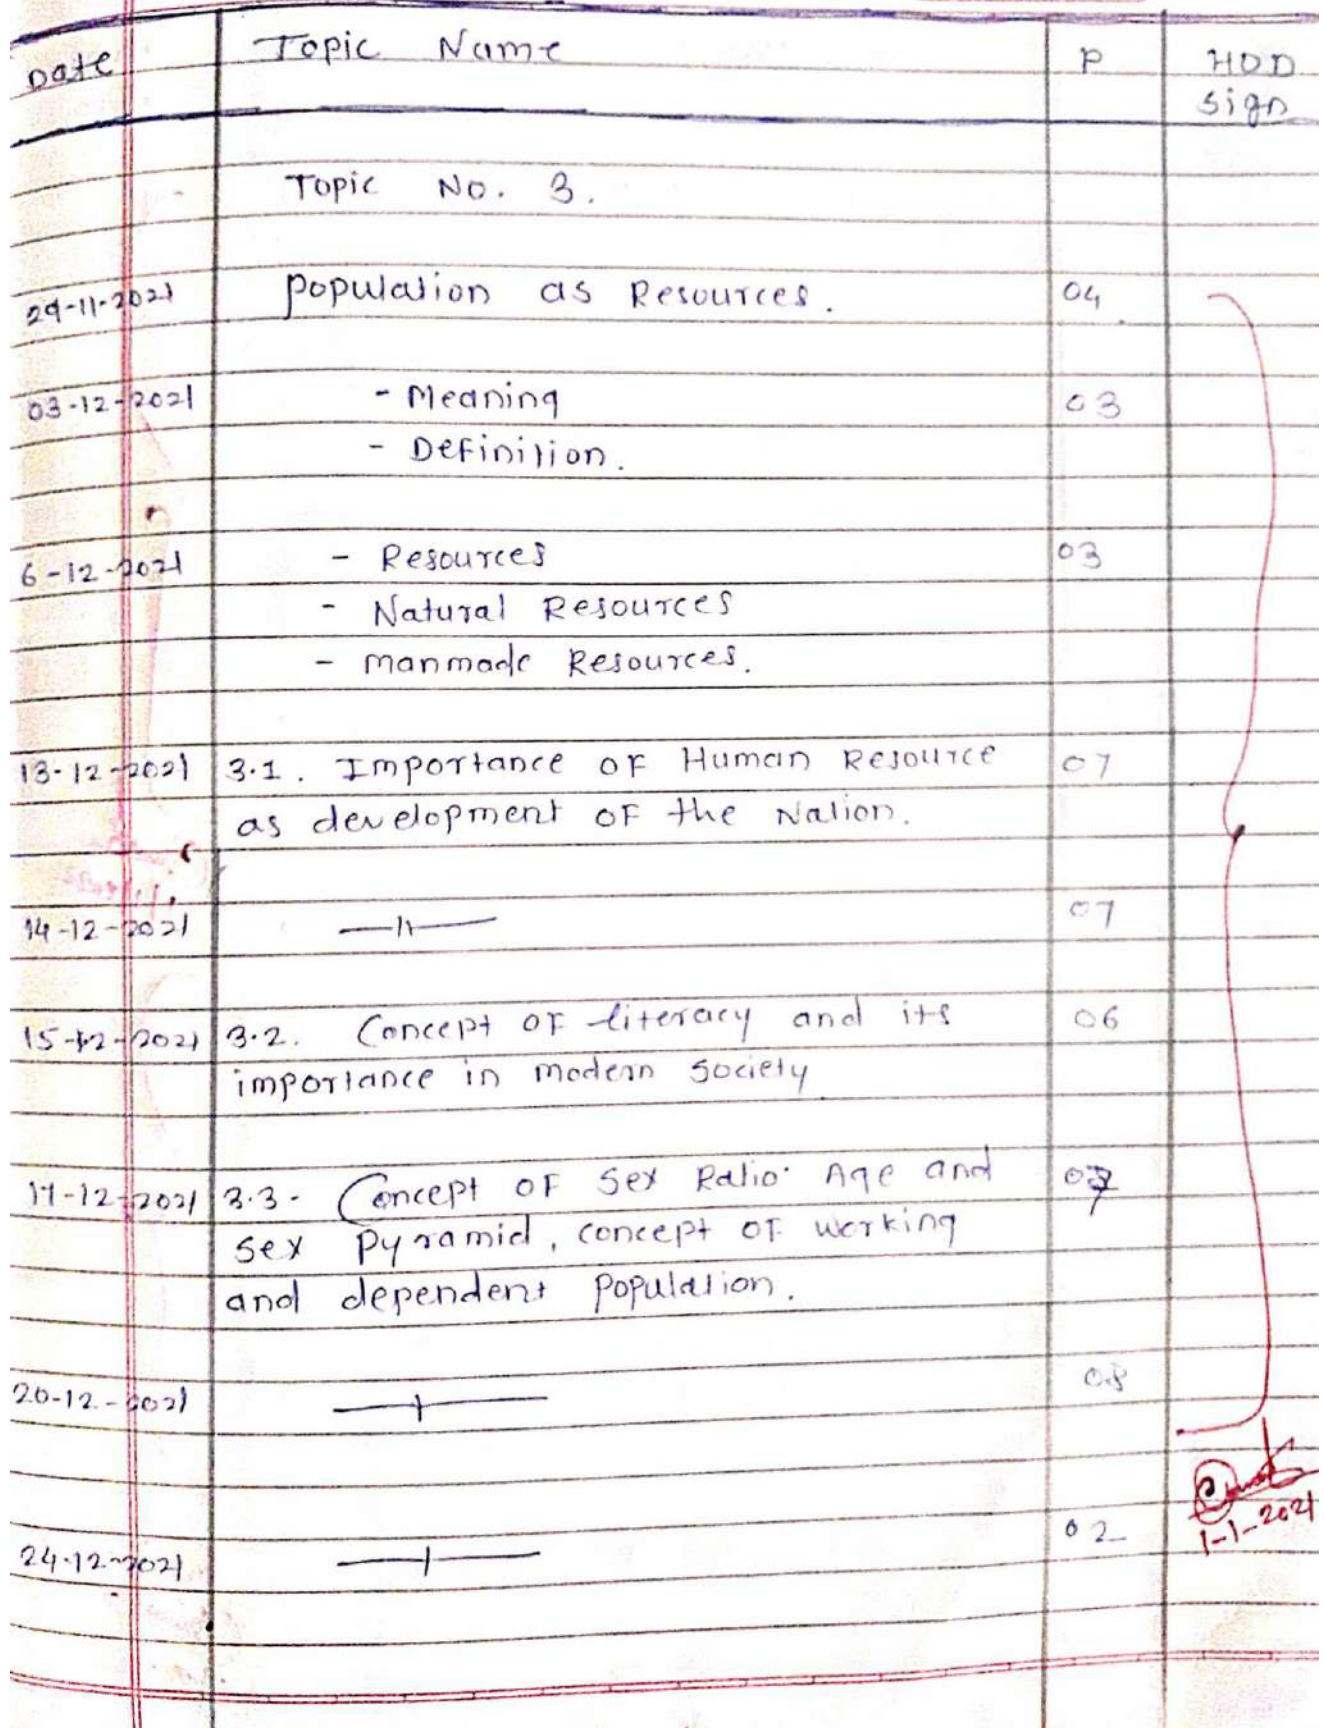 Date Topic Name P HOD
sign
Topic No. 3.
29-11-2021 Population as Resources. 04
03-12-2021 - Meaning 03
- Definition.
6-12-2021 - Resources 03
- Natural Resources
- manmade Resources.
13-12-2021 3.1. Importance of Human Resource 07
as development of the Nation.
14-12-2021 —11— 07
15-12-2021 3.2. Concept of literacy and its 06
importance in modern society
17-12-2021 3.3. Concept of Sex Ratio. Age and
sex pyramid, concept of working
and dependent population.
20-12-2021 08
24-12-2021 02
1-1-2021